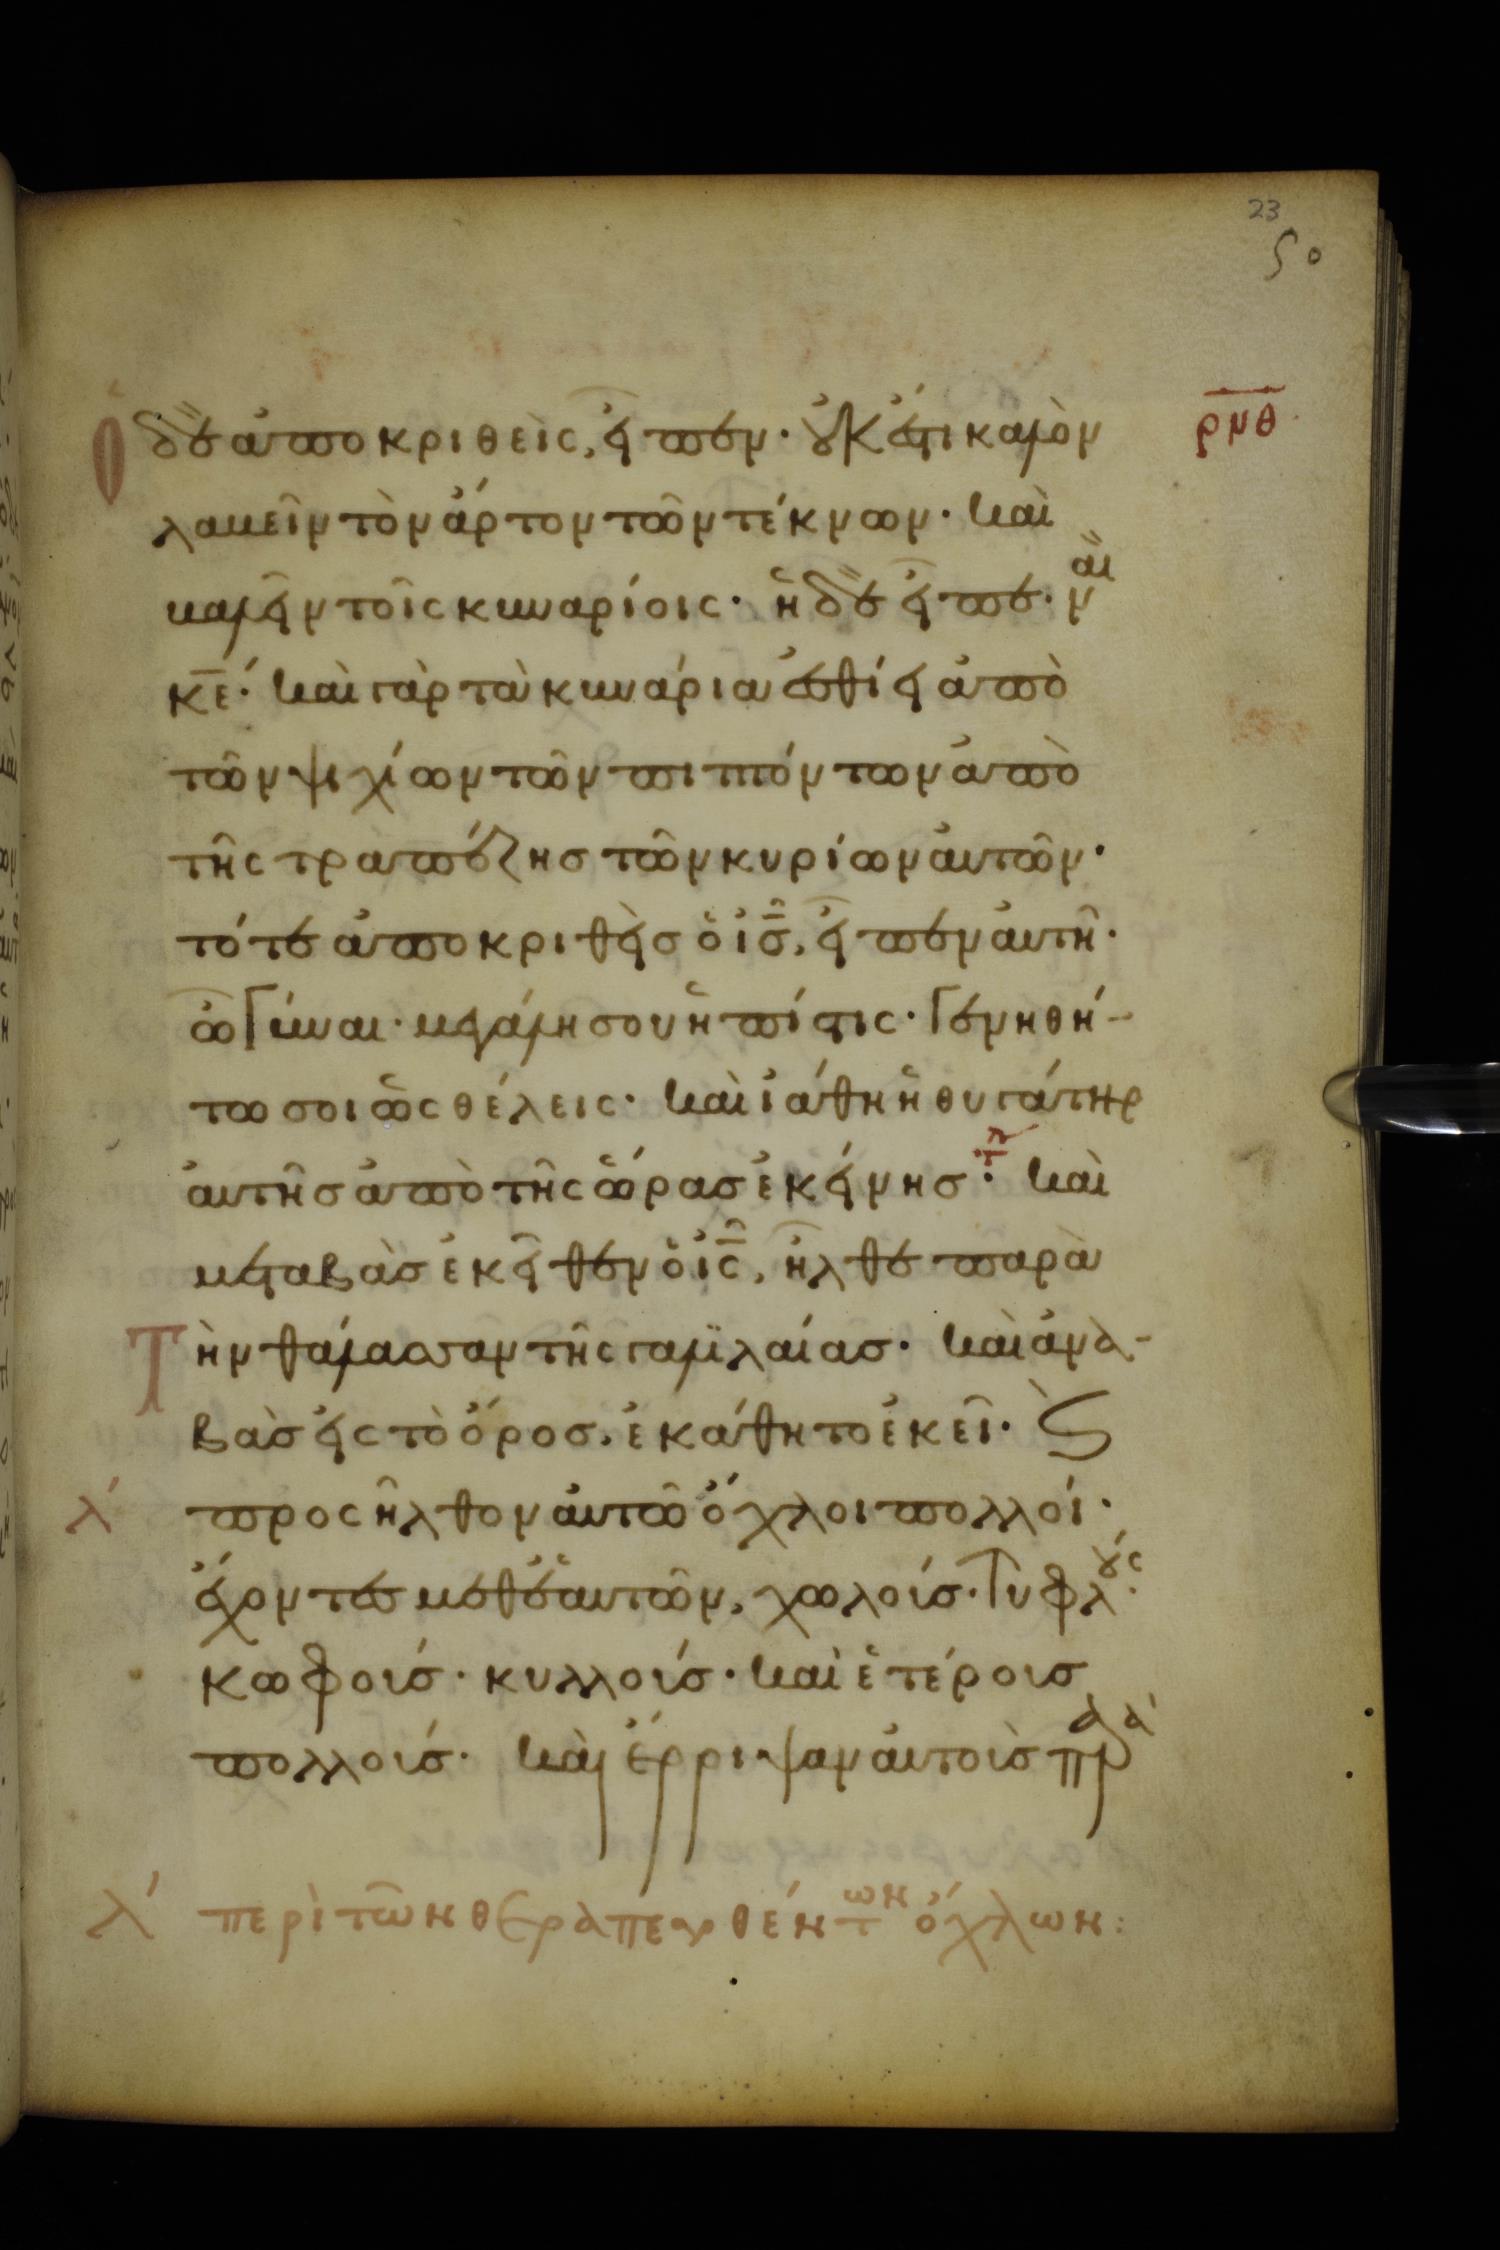 23
50
ρμθ
Ὁ δὲ ἀποκριθεὶς, εἶπεν· οὐκ ἔστι καλὸν
λαβεῖν τὸν ἄρτον τῶν τέκνων· καὶ
βαλεῖν τοῖς κυναρίοις· ἡ δὲ εἶπε· ναὶ
κε̅· καὶ γὰρ τὰ κυνάρια ἐσθίει ἀπὸ
τῶν ψιχίων τῶν πιπτόντων ἀπὸ
τῆς τραπέζησ τῶν κυρίων αὐτῶν·
τότε ἀποκριθεὶσ ὁ ισ̅, εἶπεν αὐτῆ·
ὦ γύναι· μεγάλη σου ἡ πίστις· γενηθή-
τω σοι ὡς θέλεις· καὶ ἰάθη ἡ θυγάτηρ
αὐτῆσ ἀπὸ τῆς ὥρασ ἐκείνησ· καὶ
μεταβὰσ ἐκεῖθεν ὁ ις̅, ἦλθε παρὰ
Τὴν θάλασσαν τῆς γαλϊλαίασ· καὶ ἀνα-
βὰσ εἰς τὸ ὄροσ, ἐκάθητο ἐκεῖ· ϛ̀
λ´ προσῆλθον αὐτῶ ὄχλοι πολλοί·
ἔχοντεσ μεθ' ἑαυτῶν, χωλοίσ· τυφλούς·
κωφοίσ· κυλλοίσ· καὶ ἑτέροισ
πολλοίσ· καὶ ἔρριψαν αὐτοὶσ παρὰ
λ´ περὶ τῶν θεραπευθέντων ὄχλων: